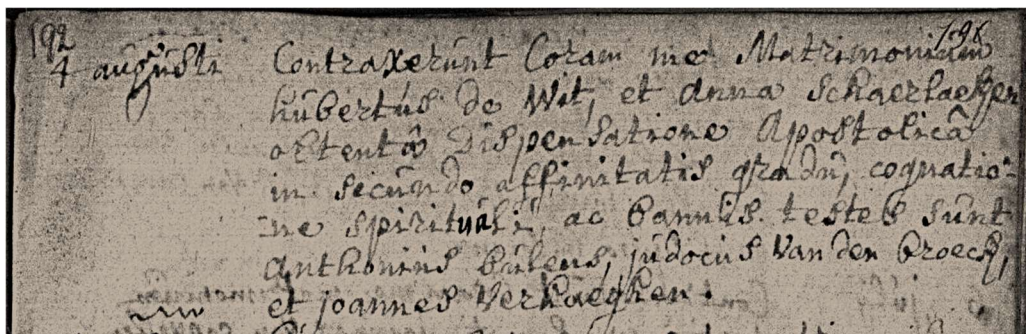 192
198
4 augusti Contraxerunt Coram me Matrimonium
hubertus de Wit, et Anna Schaerlaeken
obtentâ Dispensatione Apostolicâ
in secundo affinitatis gradu, cognatio-
-ne spirituali, ac bannis. testes sunt
Anthonius bulens, judocus Van den broeck,
et joannes Verhaeghen.